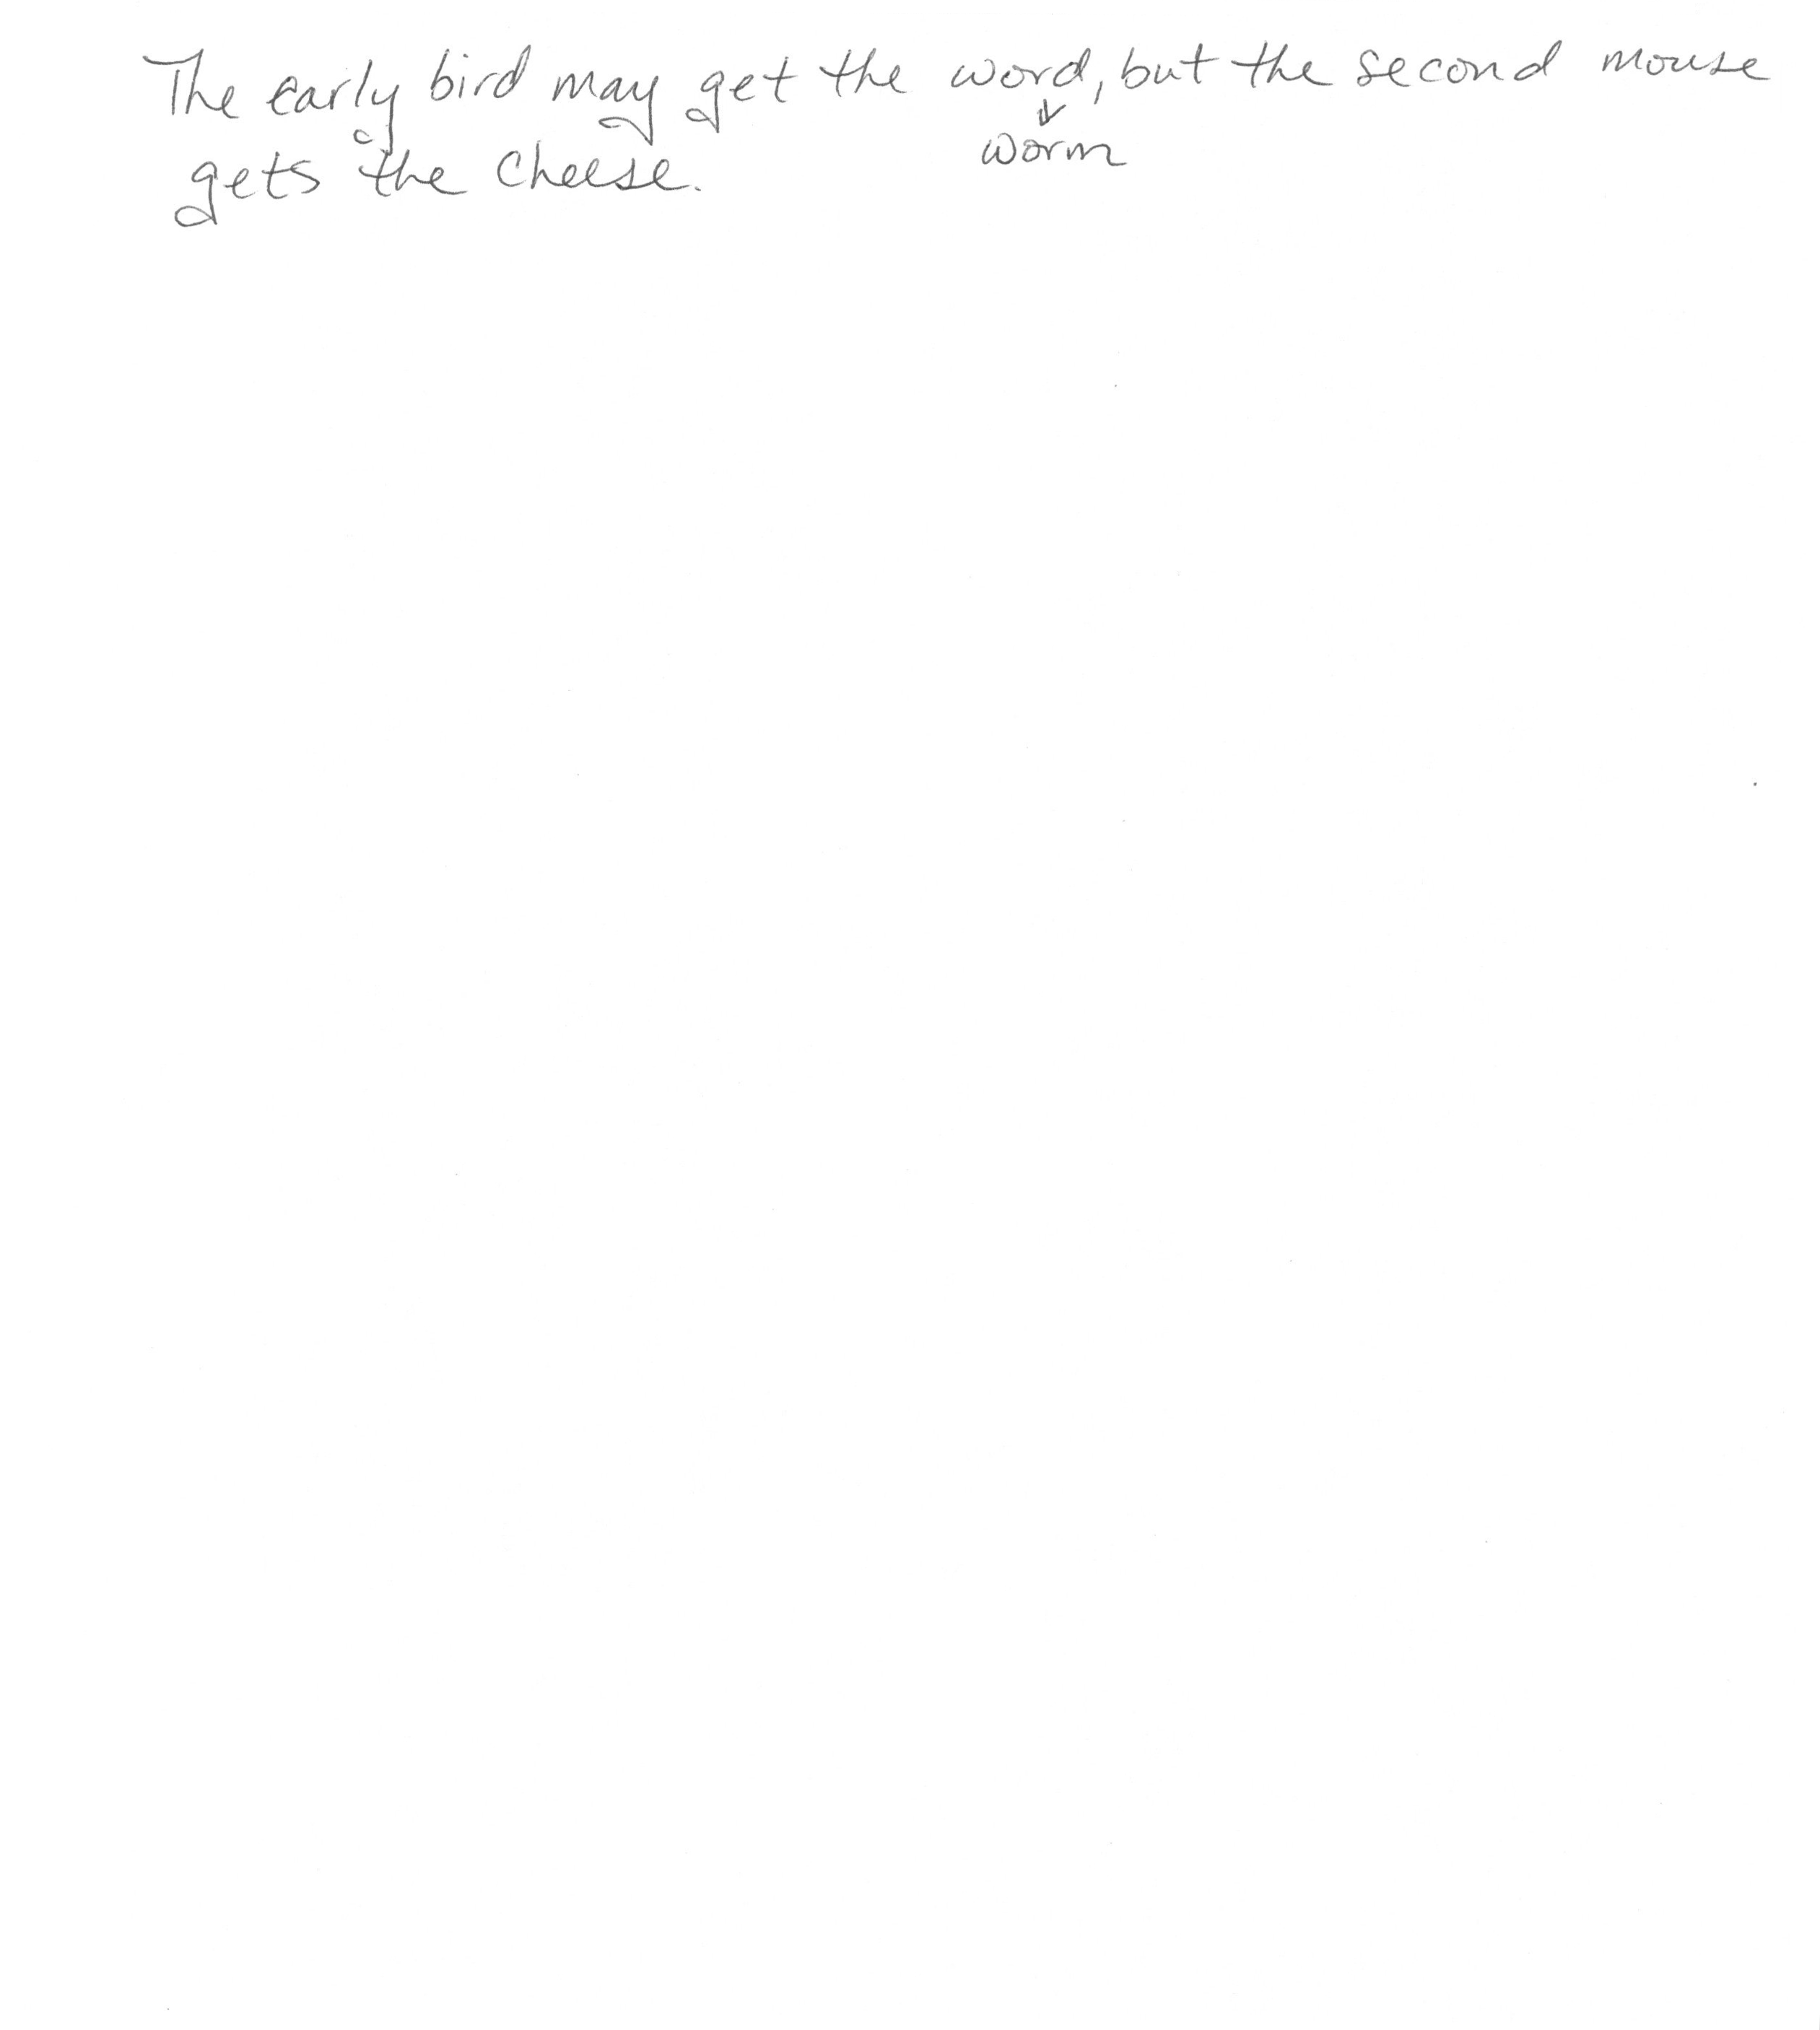 The early bird may get the word, but the second mouse
worm
gets the cheese.